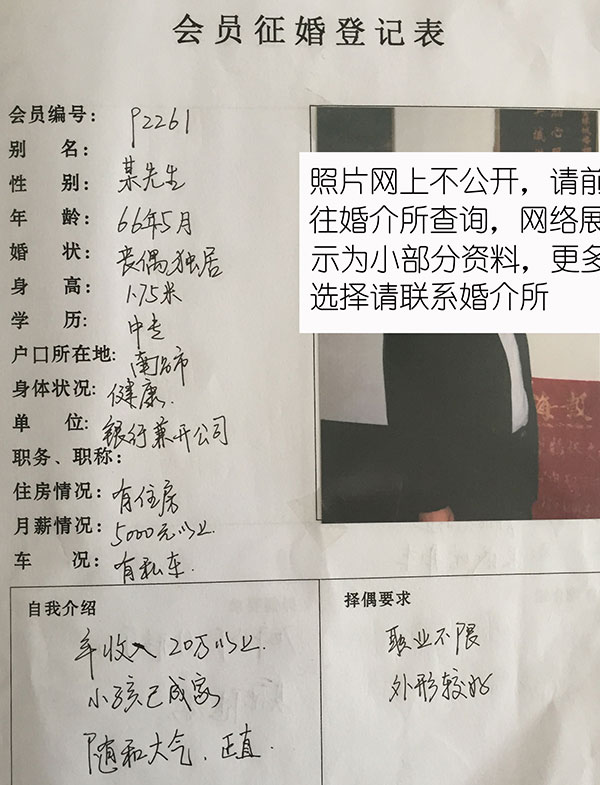 会员征婚登记表
会员编号: P2261
别 名:
性 别: 某先生
年 龄: 66年5月
婚 状: 丧偶独居
身 高: 1.75米
学 历: 中专
户口所在地: 南昌市
身体状况: 健康.
单 位: 银行兼开公司
职务、职称:
住房情况: 有住房
月薪情况: 5000元以上
车 况: 有私车.
照片网上不公开，请前
往婚介所查询，网络展
示为小部分资料，更多
选择请联系婚介所
自我介绍
年收入20万以上.
小孩已成家
随和大气、正直
择偶要求
职业不限
外形较好